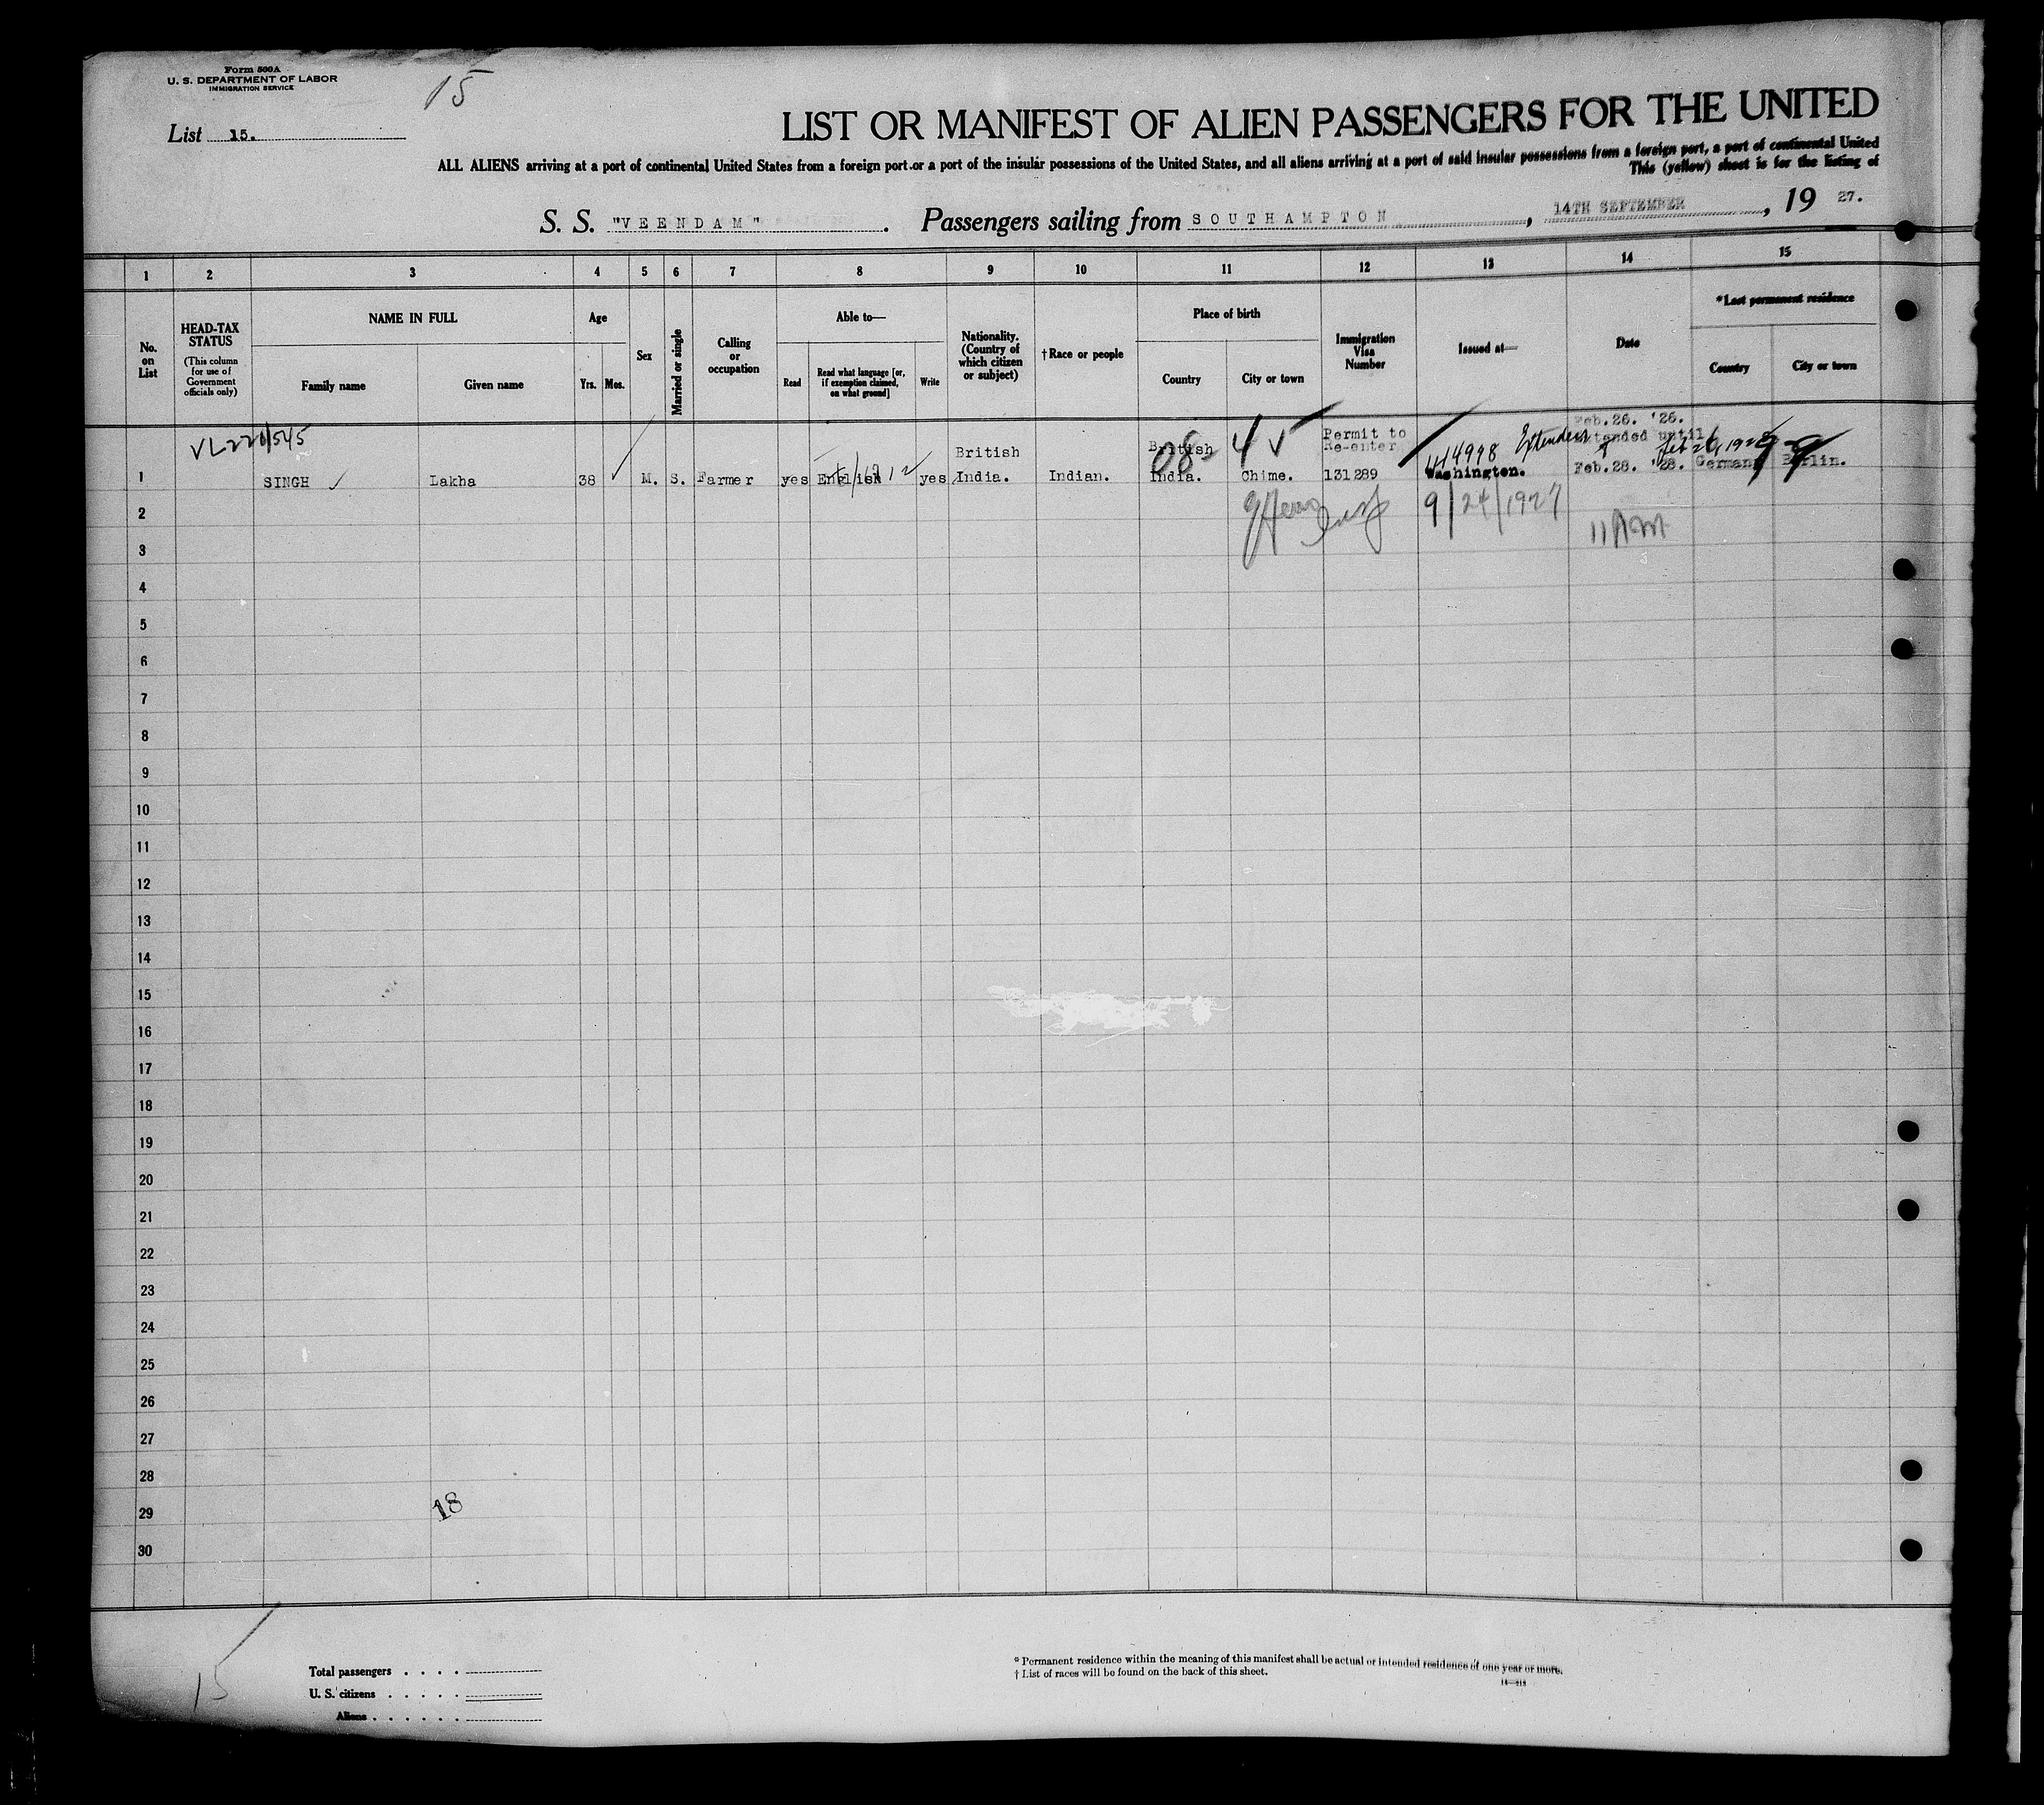 Form 500A
U. S. DEPARTMENT OF LABOR
IMMIGRATION SERVICE
15
List 15.
LIST OR MANIFEST OF ALIEN PASSENGERS FOR THE UNITED
ALL ALIENS arriving at a port of continental United States from a foreign port or a port of the insular possessions of the United States, and all aliens arriving at a port of said insular possessions from a foreign port, a port of continental United
This (yellow) sheet is for the listing of
S. S. "VEENDAM". Passengers sailing from SOUTHAMPTON, 14TH SEPTEMBER, 19 27.
1 2 3 4 5 6 7 8 9 10 11 12 13 14 15
No. on List
HEAD-TAX STATUS
(This column for use of Government officials only)
NAME IN FULL
Family name
Given name
Age
Yrs. Mos.
Sex
Married or single
Calling or occupation
Able to—
Read
Read what language [or, if exemption claimed, on what ground]
Write
Nationality. (Country of which citizen or subject)
†Race or people
Place of birth
Country
City or town
Immigration Visa Number
Issued at—
Date
*Last permanent residence
Country
City or town
1 SINGH Lakha 38 M. S. Farmer yes English yes British India. Indian. British India. Chime. Permit to Re-enter 131289 Washington. Feb.26. '26. Extended until Feb.28. '28. Germany Berlin.
144998 Extended
9/24/1927
11 AM
2
3
4
5
6
7
8
9
10
11
12
13
14
15
16
17
18
19
20
21
22
23
24
25
26
27
28
29
30
18
15
Total passengers . . . .
U. S. citizens . . . . .
Aliens . . . . . .
* Permanent residence within the meaning of this manifest shall be actual or intended residence of one year or more.
† List of races will be found on the back of this sheet.